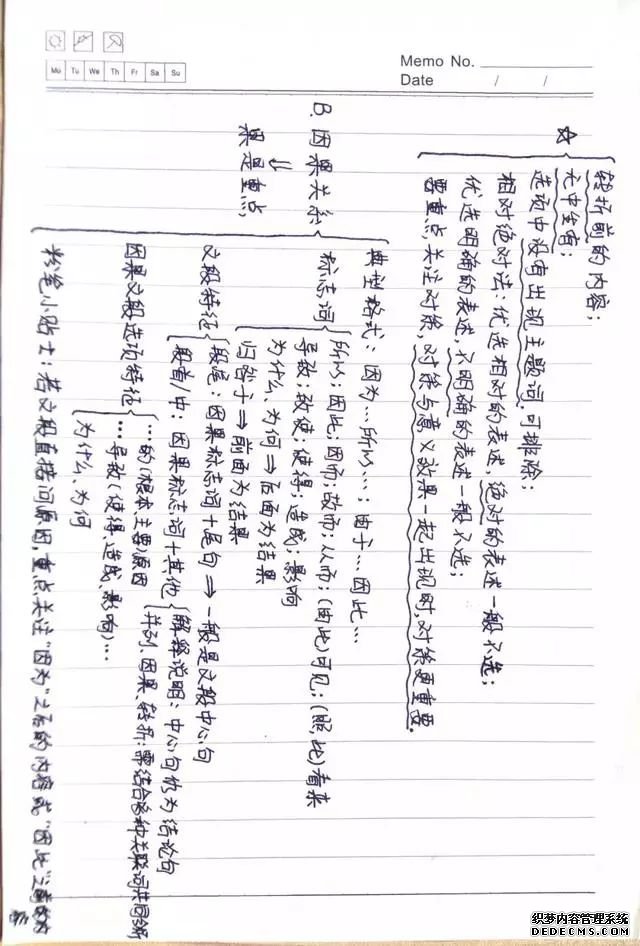 Memo No.
Date / /
Mo Tu We Th Fr Sa Su
转折前的内容;
☆ 无中生有:
选项中没有出现主题词,可排除;
相对绝对法:优选相对的表述,绝对的表述一般不选;
优选明确的表述,不明确的表述一般不选;
要重点关注对策,对策与意义效果一起出现时,对策更重要.
B. 因果关系
果是重点
典型格式:因为…所以…;由于…因此…
标志词
所以;因此;因而;故而;从而;(由此)可见;(照此)看来
导致;致使;使得;造成;影响
为什么、为何⇒后面为结果
归咎于⇒前面为结果
文段特征
段尾:因果标志词+尾句⇒一般是文段中心句
段首/中:因果标志词+其他
解释说明:中心句仍为结论句
并列、因果、转折:需结合各种关联词共同分析
因果文段选项特征
…的(根本主要)原因
…导致(使得、造成、影响)…
为什么、为何
粉笔小贴士:若文段直接问原因,重点关注“因为”之后的内容或“因此”之前的内
织梦内容管理系统
DEDECMS.COM